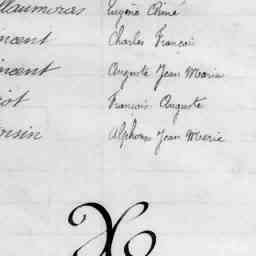 Eugène Aimé
incent Charles François
incent Auguste Jean Marie
iot François Auguste
nsin Alphonse Jean Marie